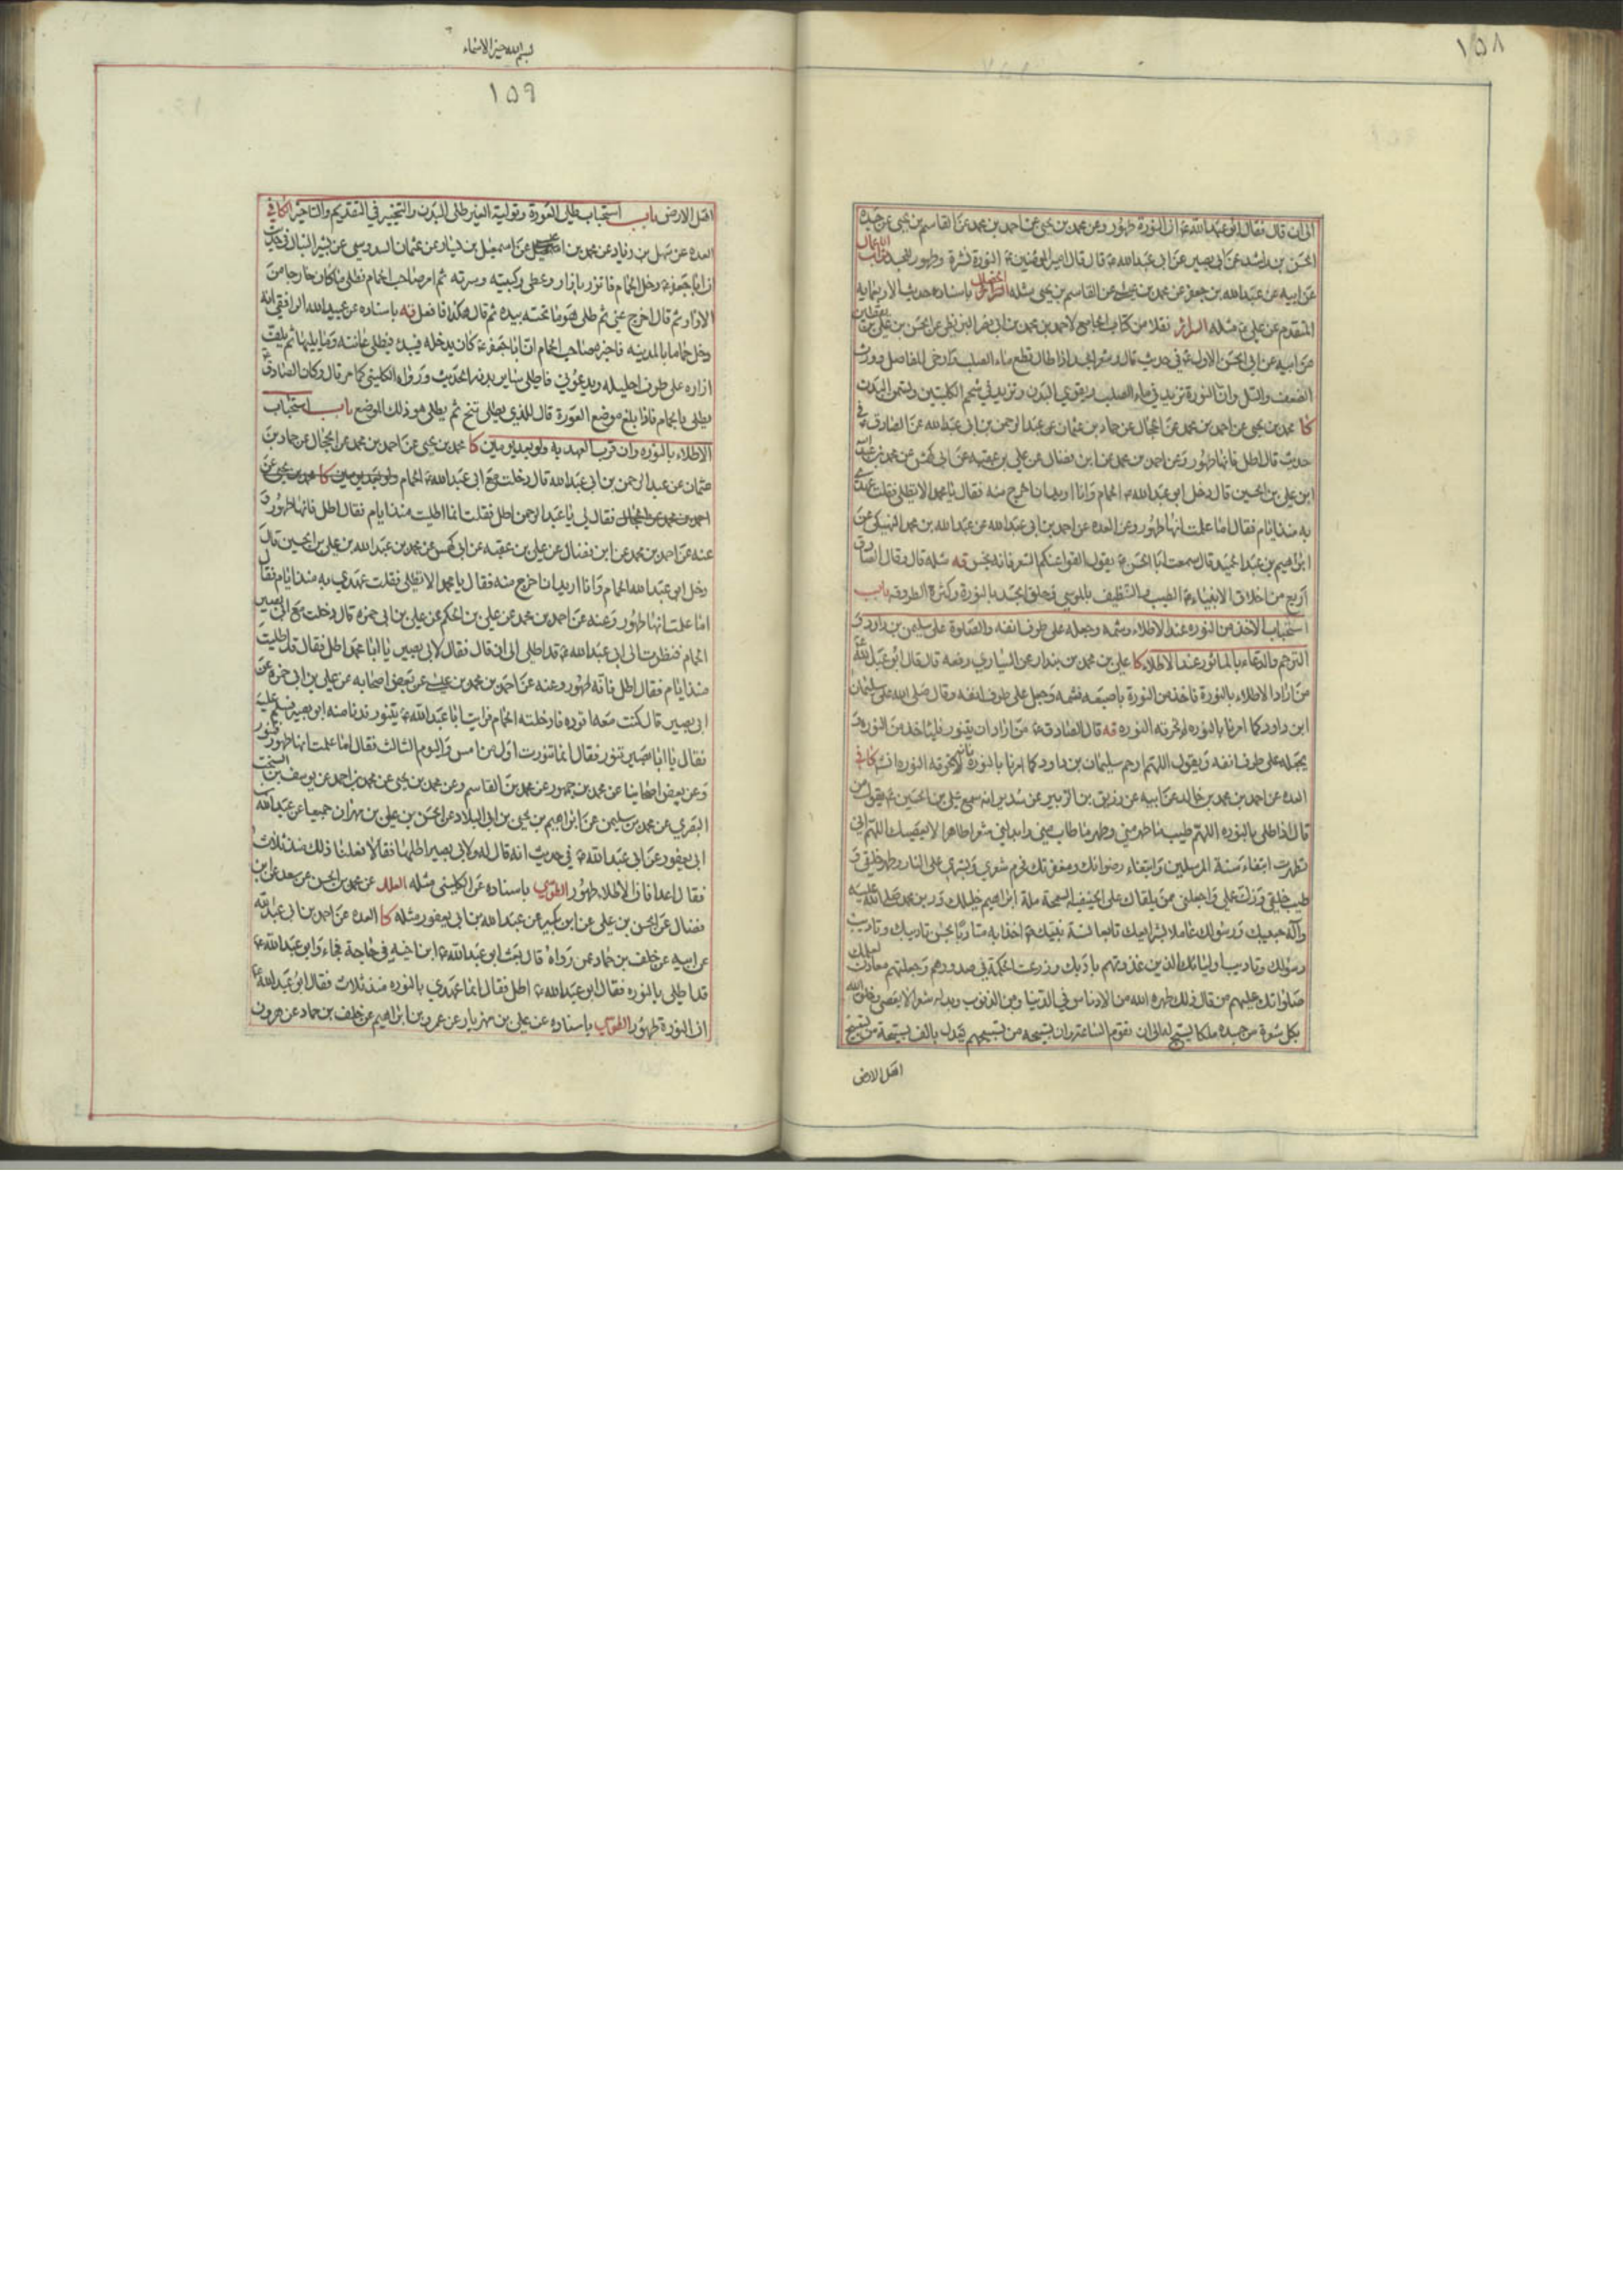 ١٥٨
الى ان قال فقال ابو عبد الله ع ان النورة طهور وعن محمد بن يحيى عن احمد بن محمد عن القاسم بن يحيى عن جده
الحسن بن راشد عن ابى بصير عن ابى عبد الله ع قال قال امير المؤمنين ع النورة نشرة وطهور للجسد ثواب الاعمال
عن ابيه عن عبد الله بن جعفر عن محمد بن عن القاسم بن يحيى مثله الخصال باسناده حديث الاربعمائة
المتقدم عن علي ع مثله السرائر نقلا من كتاب الجامع لاحمد بن محمد بن ابى نصر البزنطى عن الحسن بن علي بن يقطين
عن ابيه عن ابى الحسن الاول ع فى حديث قال شعر الجسد اذا طال قطع ماء الصلب وارخى المفاصل وورث
الضعف والسل وان النورة تزيد فى ماء الصلب وتقوي البدن وتزيد في شحم الكليتين وتسمن البدن
كا محمد بن يحيى عن احمد بن محمد عن الحجال عن حماد بن عثمان عن عبد الرحمن بن ابى عبد الله عن الصادق ع في
حديث قال اطل فانها طهور وعن احمد بن محمد عن ابن فضال عن علي بن عقبة عن ابى كهمس عن محمد بن عبد الله
ابن علي بن الحسين قال دخل ابو عبد الله ع الحمام وانا اريد ان اخرج منه فقال يا محمد الا تطلى فقلت عهدى
به منذ ايام فقال اما علمت انها طهور وعن العده عن احمد بن ابى عبد الله عن عبد الله بن محمد النهيكي عن
ابراهيم بن عبد الحميد قال سمعت ابا الحسن ع يقول القوا عنكم الشعر فانه نجس قه مثله قال وقال الصادق
اربع من اخلاق الانبياء ع الطيب والتنظيف بالموسى وحلق الجسد بالنورة وكثرة الطروقه باب
استحباب الاخذ من النوره عند الاطلاء وشمه وجعله على طرف انفه والصلوة على سليمن بن داود
الترحم والدعاء بالماثور عند الاطلاء كا علي بن محمد بن بندار عن السياري رفعه قال قال ابو عبد الله ع
من اراد الاطلاء بالنورة فاخذ من النورة باصبعه فشمه وجعل على طرف انفه وقال صلى الله على سليمان
ابن داود كما امرنا بالنوره لم تحرقه النوره قه قال الصادق ع من اراد ان يتنور فليأخذ من النورة و
يجعله على طرف انفه ويقول اللهم ارحم سليمان بن داود كما امرنا بالنورة فانه لا تحرقه النوره انشـ كافي
العده عن احمد بن محمد بن خالد عن ابيه عن زريق بن الزبير عن سدير انه سمع علي بن الحسين ع يقول من
قال اذا طلى بالنوره اللهم طيب ما طهر مني وطهر ما طاب مني وابدلني شعرا طاهرا لا يعصيك اللهم اني
تطهرت ابتغاء سنة المرسلين وابتغاء رضوانك ومغفرتك فحرم شعري وبشري على النار وطهر خلقي و
طيب خلقي وزك عملي واجعلني ممن يلقاك على الحنيفية السمحة ملة ابراهيم خليلك ودين محمد صلى الله عليه
وآله حبيبك ورسولك عاملا بشرايعك تابعا لسنة نبيك ص اخذا به متأدبا بحسن تاديبك وتاديب
رسولك وتاديب اوليائك الذين غذوتهم بادبك وزرعت الحكمة في صدورهم وجعلتهم معادن لعلمك
صلواتك عليهم من قال ذلك طهره الله من الادناس في الدنيا ومن الذنوب وبدله شعرا لا يعصى وخلق الله
بكل شعرة من جسده ملكا يسبح له الى ان تقوم الساعة وان تسبيحه من تسبيحهم تعدل بالف تسبيحة من تسبيح
اهل الارض
بسم الله خير الاسماء
١٥٩
اهل الارض باب استحباب طلى العورة وتولية الغير طلى البدن والتخيير في التقديم والتاخير الكافي
العده عن سهل بن زياد عن محمد بن عن اسمعيل بن يسار عن عثمان السدوسى عن بشير النبال فى حديث
ان ابا جعفر ع دخل الحمام فاتزر بازار وغطى ركبتيه وسرته ثم امر صاحب الحمام فطلى ما كان خارجا من
الازار ثم قال اخرج عني ثم طلى هو ما تحته بيده ثم قال هكذا فافعل قه باسناده عن عبيد الله الرافقى انه
دخل حماما بالمدينه فاخبره صاحب الحمام ان ابا جعفر ع كان يدخله فيبدء فيطلى عانته وما يليها ثم يلف
ازاره على طرف احليله ويدعوني فاطلى ساير بدنه الحديث ورواه الكليني كما مر قال وكان الصادق ع
يطلى بالحمام فاذا بلغ موضع العورة قال للذي يطلى تنح ثم يطلى هو ذلك الموضع باب استحباب
الاطلاء بالنوره وان قرب العهد به ولو بعد يومين كا محمد بن يحيى عن احمد بن محمد عن الحجال عن حماد بن
عثمان عن عبد الرحمن بن ابى عبد الله قال دخلت مع ابى عبد الله ع الحمام ولو بعد يومين كا محمد بن يحيى عن
احمد بن محمد عن الحجال فقال لى يا عبد الرحمن اطل فقلت انما اطليت منذ ايام فقال اطل فانها طهور و
عنه عن احمد بن محمد عن ابن فضال عن علي بن عقبه عن ابى كهمس عن محمد بن عبد الله بن علي بن الحسين قال
دخل ابو عبد الله الحمام وانا اريد ان اخرج منه فقال يا محمد الا تطلى فقلت عهدي به منذ ايام فقال
اما علمت انها طهور وعنه عن احمد بن محمد عن علي بن الحكم عن علي بن ابى حمزه قال دخلت مع ابى بصير
الحمام فنظرت الى ابى عبد الله ع قد اطلى الى ان قال فقال لابى بصير يا ابا محمد اطل فقال قد اطليت
منذ ايام فقال اطل فانه طهور وعنه عن احمد بن محمد بن عن بعض اصحابه عن علي بن ابى حمزه عن
ابى بصير قال كنت معه اقوده فادخلته الحمام فرايت ابا عبد الله ع يتنور فدنا منه ابو بصير فسلم عليه
فقال يا ابا بصير تنور فقال انما تنورت اول من امس واليوم الثالث فقال اما علمت انها طهور فتنور
وعن بعض اصحابنا عن محمد بن جمهور عن محمد بن القاسم وعن محمد بن يحيى عن محمد بن احمد عن يوسف بن السخت
البصري عن محمد بن سليمن عن ابراهيم بن يحيى بن ابى البلاد عن الحسن بن علي بن مهران جميعا عن عبد الله
ابى يعفور عن ابى عبد الله ع في حديث انه قال له ولابى بصير اطليا فقالا فعلنا ذلك منذ ثلاث
فقال اعدا فان الاطلاء طهور الطوسي باسناده عن الكليني مثله العلل عن محمد بن الحسن عن سعد عن ابن
فضال عن الحسن بن علي عن ابن بكير عن عبد الله بن ابى يعفور مثله كا العده عن احمد بن ابى عبد الله
عن ابيه عن خلف بن حماد عمن رواه قال بعث ابو عبد الله ع ابن اخيه في حاجة فجاء وابو عبد الله ع
قد اطلى بالنوره فقال ابو عبد الله ع اطل فقال انما عهدي بالنوره منذ ثلاث فقال ابو عبد الله ع
ان النورة طهور الطوسي باسناده عن علي بن مهزيار عن عمرو بن ابراهيم عن خلف بن حماد عن هرون